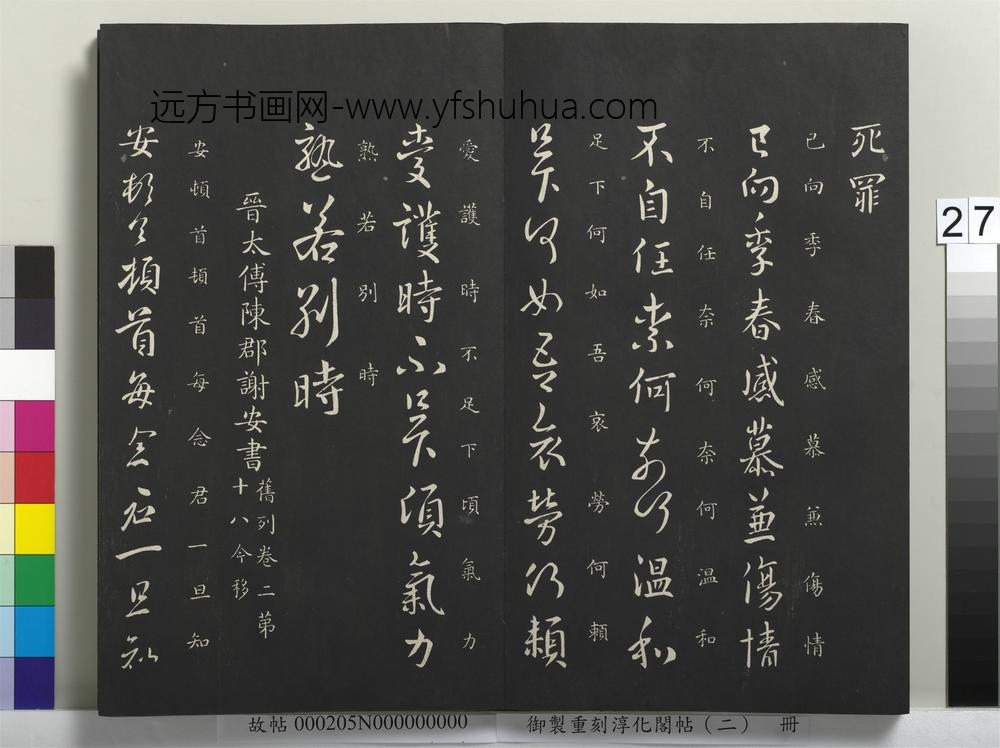 远方书画网-www.yfshuhua.com
死罪
已向季春感慕兼傷情
已向季春感慕兼傷情
不自任奈何奈何温和
不自任奈何奈何温和
足下何如吾哀勞何頼
足下何如吾哀勞何頼
愛護時不足下頃氣力
愛護時不足下頃氣力
熟若別時
熟若別時
晉太傅陳郡謝安書舊列卷二苐十八今移
安頓首頓首每念君一旦知
安頓首頓首每念君一旦知
27
故帖 000205N000000000
御製重刻淳化閣帖（二） 冊